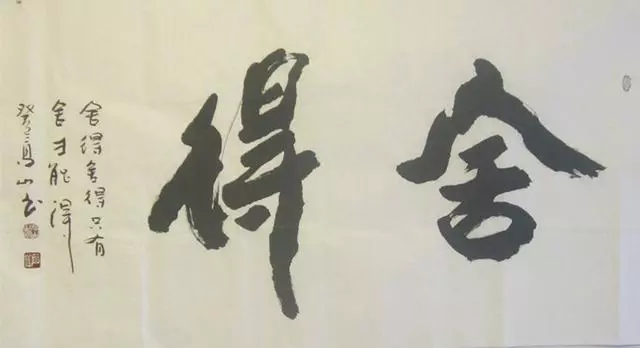 舍得
舍得舍得只有
舍才能得
癸 山书